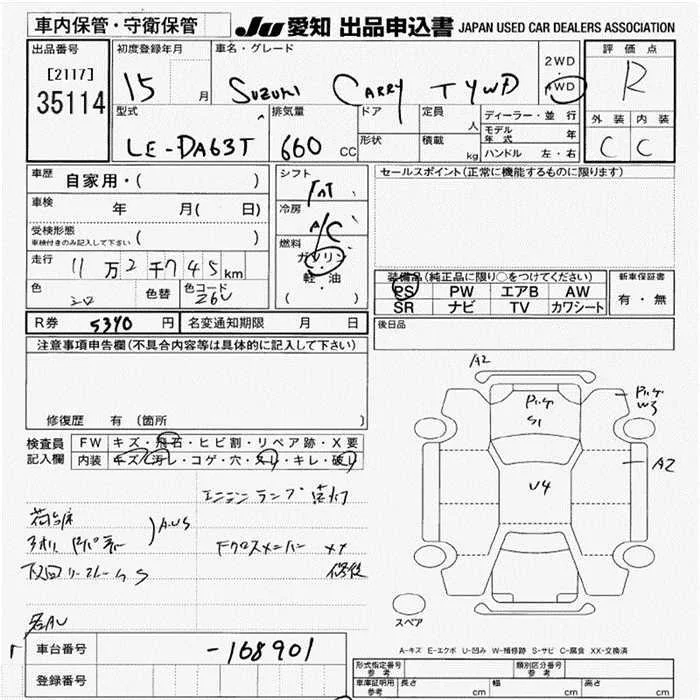 車内保管・守衛保管
JU 愛知 出品申込書 JAPAN USED CAR DEALERS ASSOCIATION
出品番号 初度登録年月 車名・グレード 評価点
[2117] 35114 15 月 SUZUKI CARRY TV 2WD 4WD R
型式 排気量 ドア 定員 人 ディーラー・並行 外装 内装
LE-DA63T 660 CC 形状 積載 kg モデル年式 年 C C
ハンドル 左・右
車歴 自家用・( ) シフト セールスポイント(正常に機能するものに限ります)
車検 年 月( 日) 冷房 A/C
受検形態 車検付きのみ記入して下さい ( )
燃料 ガソリン・軽油 ( )
走行 11万2千745km
装備品(純正品に限り○をつけてください) 新車保証書
色 色替 色コード Z6U
PS PW エアB AW 有・無
SR ナビ TV カワシート
R券 5340 円 名変通知期限 月 日 後日品
注意事項申告欄(不具合内容等は具体的に記入して下さい)
修復歴 有 (箇所 )
検査員記入欄 FW キズ・飛石・ヒビ割・リペア跡・X要
内装 キズ・汚レ・コゲ・穴・スレ・キレ・破レ
A2
S1
W3
A2
U4
エンジンランプ点灯
荷台床
A.U.S
Fクロスメンバー XX
修復
下回り
S
各AU
スペア
車台番号 -168901
登録番号
A-キズ E-エクボ U-凹み W-補修跡 S-サビ C-腐食 XX-交換済
形式指定番号 参考 類別区分番号 参考
車庫証明用 参考 長さ cm 幅 cm 高さ cm